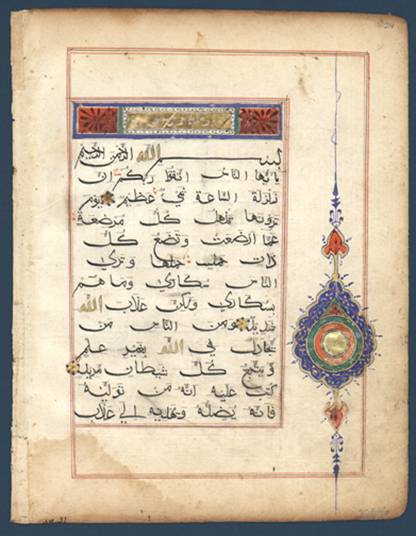 بسم الله الرحمن الرحيم
يايها الناس اتقوا ربكم ان
زلزلة الساعة شي عظيم يوم
ترونها تذهل كل مرضعة
عما ارضعت وتضع كل
ذات حمل حملها وتري
الناس سكاري وما هم
بسكاري ولكن عذاب الله
شديد ومن الناس من
يجادل في الله بغير علم
ويتبع كل شيطان مريد
كتب عليه انه من توليه
فانه يضله ويهديه الي عذاب